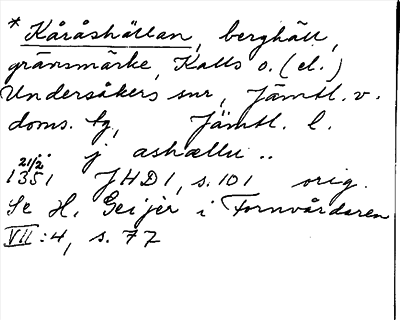 * Kåråshällan, berghäll,
gränsmärke, Kalls o. (el.)
Undersåkers snr, Jämtl. v.
doms. tg, Jämtl. l.
j ashællu ..
21/2
1351 JHD1, s. 101 orig.
Se H. Geijer i Fornvårdaren
VII:4, s. 77